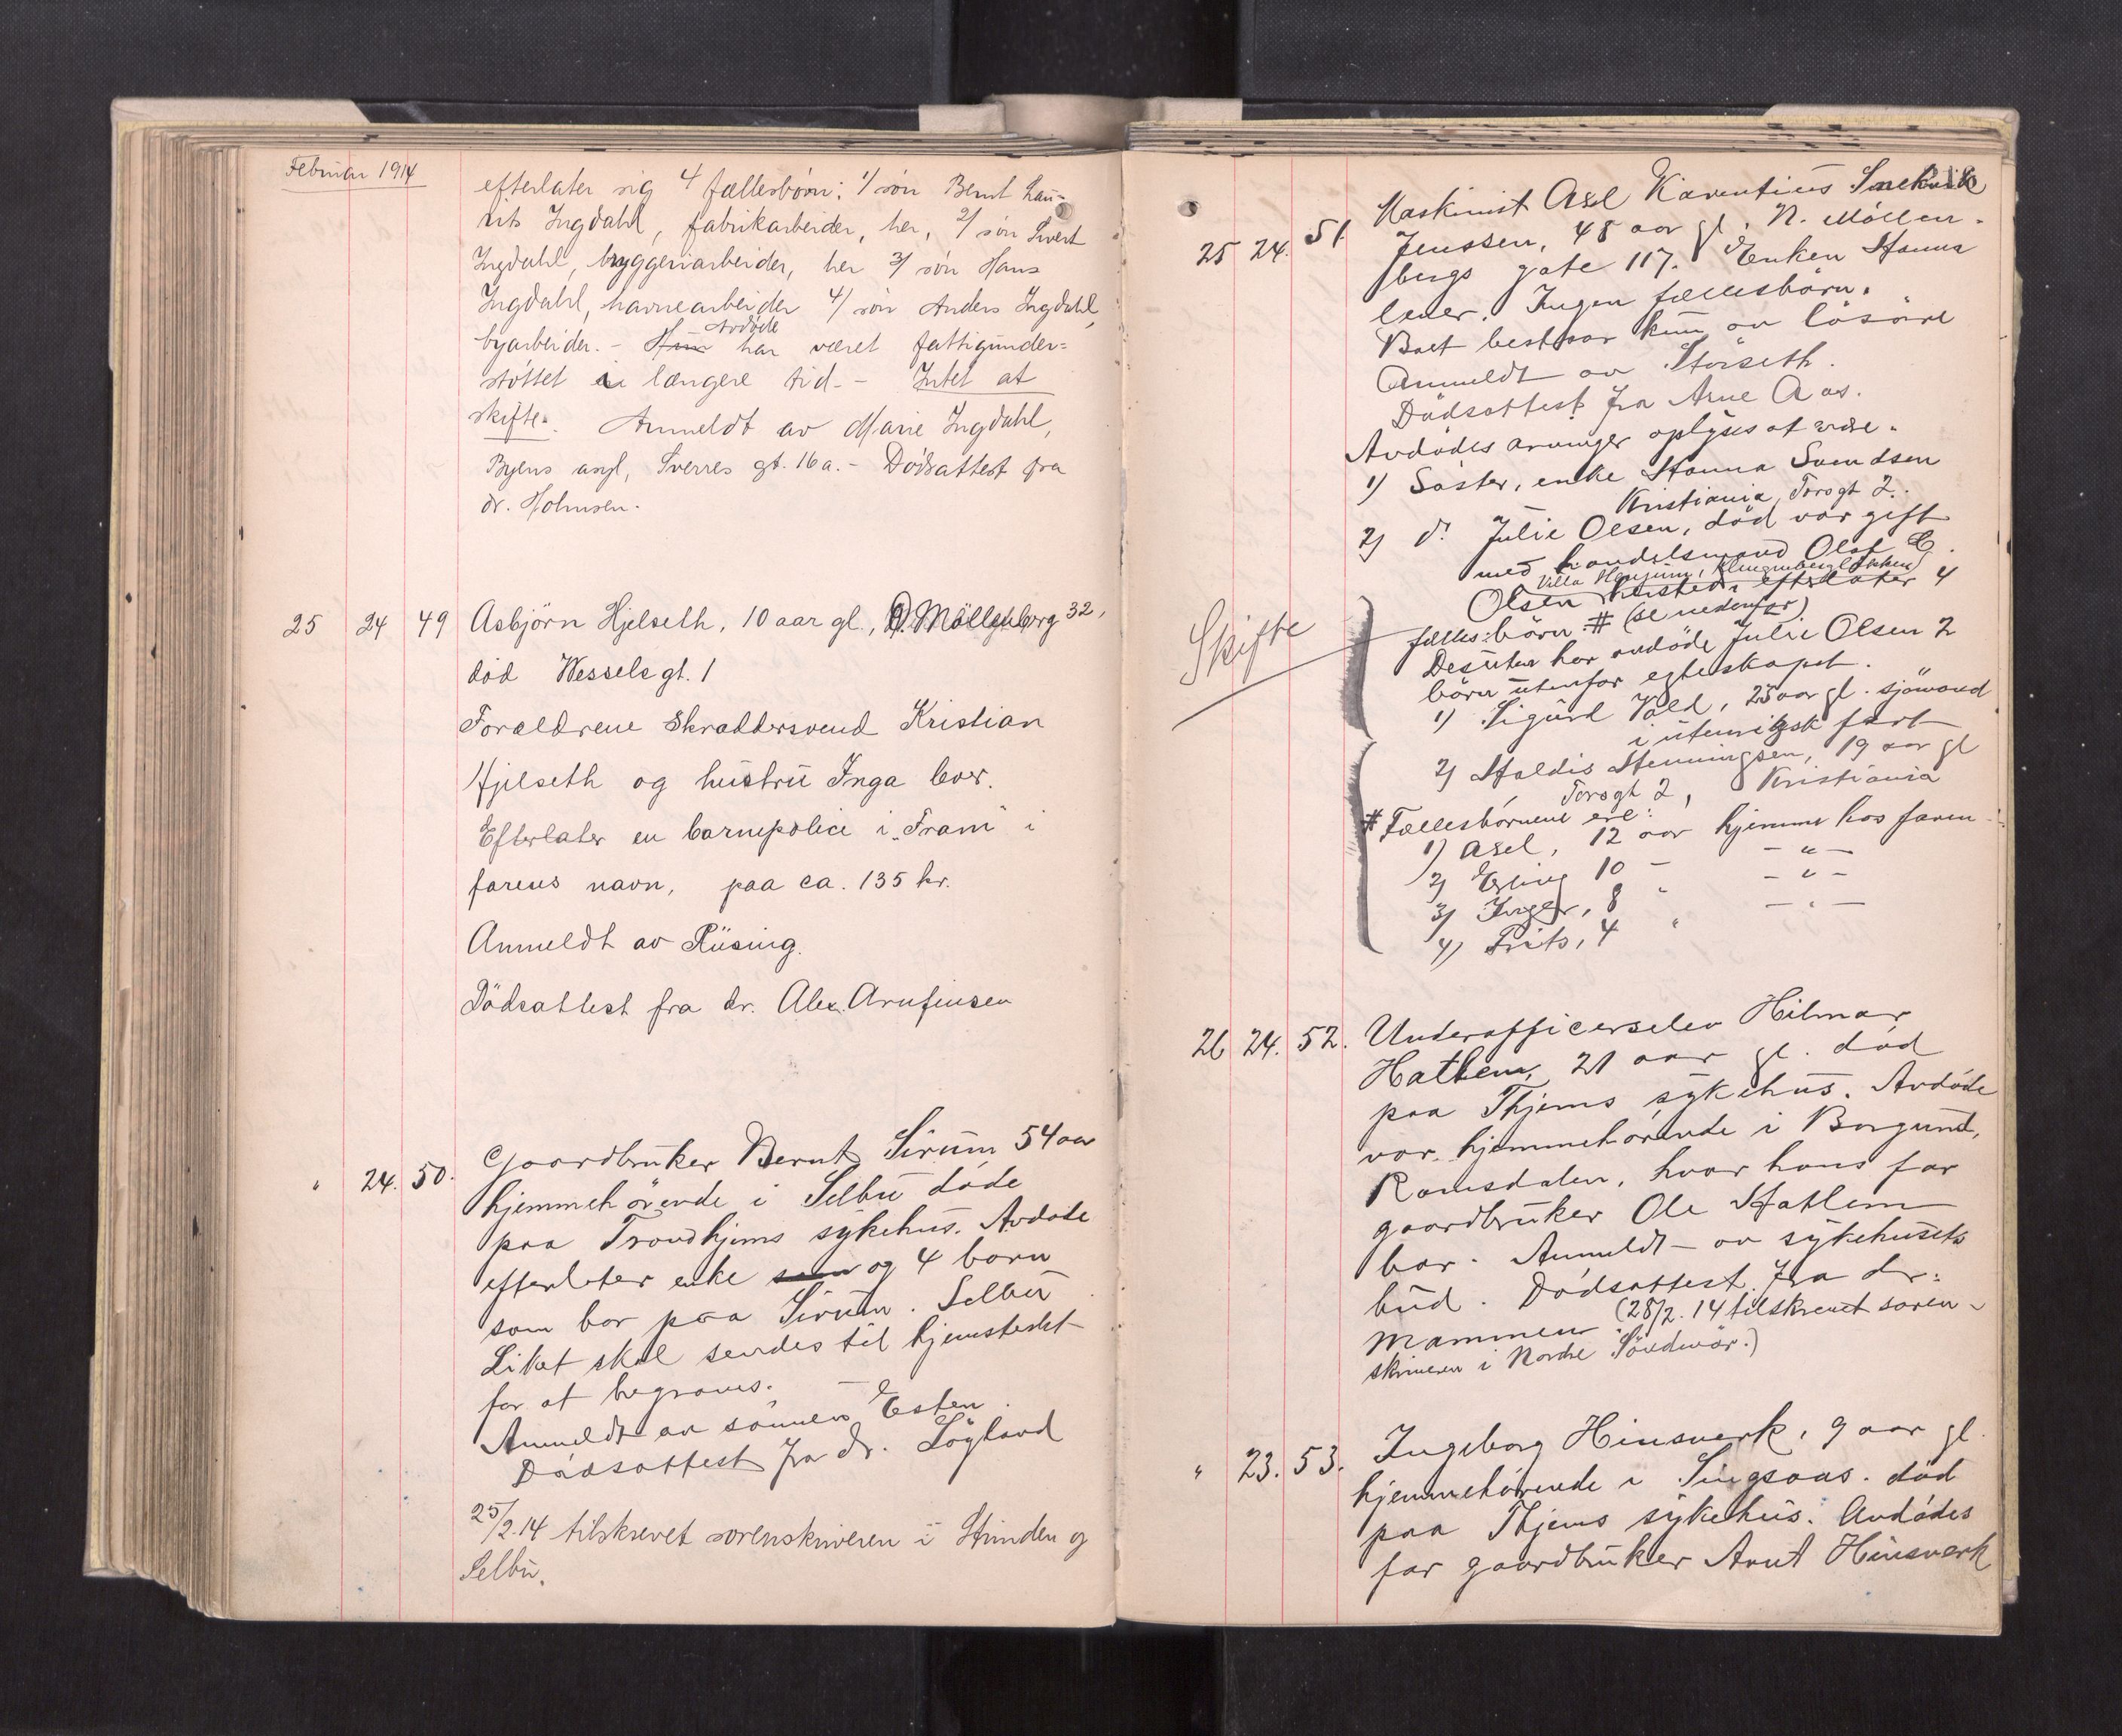 Februar 1914
efterlater sig 4 fællesbörn: 1/ sön Bernt Lau-
rits Ingdahl, fabrikarbeider, her, 2/ sön Sivert
Ingdahl, bryggeriarbeider, her 3/ sön Hans
Ingdahl, havnearbeider 4/ sön Anders Ingdahl,
Avdöde
byarbeider. - Hun har været fattigunder-
stöttet i længere tid. - Intet at
skifte. Anmeldt av Marie Ingdahl,
Byens asyl, Sverres gt. 16a. - Dödsattest fra
dr. Holmsen.
25 24 49 Asbjörn Hjelseth, 10 aar gl., Ö. Möllenberg 32,
död Wessels gt. 1
Forældrene Skræddersvend Kristian
Hjelseth og hustru Inga lever.
Efterlater en barnepolice i „Fram" i
farens navn, paa ca. 135 kr.
Anmeldt av Rüsing.
Dödsattest fra dr. Alex. Arnfinsen
" 24. 50. Gaardbruker Bernt Sirum 54 aar
hjemmehörende i Selbu döde
paa Trondhjems sykehus. Avdöde
efterlater enke som og 4 börn
som bor paa Sirum. Selbu
Liket skal sendes til hjemstedet
for at begraves.
Anmeldt av sönnen Esten.
Dödsattest fra dr. Lögland
25/2.14 tilskrevet sorenskriveren i Strinden og
Selbu.
25 24. 51. Maskinist Axel Karentius Snekvik
Jenssen, 48 aar gl. N. Möllen-
bergs gate 117. Enken Hanna
lever. Ingen fællesbörn.
Boet bestaar kun av lösöre
Anmeldt av Störseth.
Dödsattest fra Arne Aas.
Avdödes arvinger oplyses at være.
1) Söster, enke Hanna Svendsen
Kristiania, Torsgt 2.
2) do Julie Olsen, död var gift
med handelsmand Olaf E.
Villa Haujum, Klingenberglökken
Olsen efterlater 4
fællesbörn # (se nedenfor)
Skifte
Desuten har avdöde Julie Olsen 2
börn utenfor egteskapet.
1) Sigurd Vold, 25 aar gl. sjömand
i utenrigsk fart
2) Haldis Henningsen, 19 aar gl
Torsgt 2, Kristiania
# Fællesbörnene ere:
1) Axel, 12 aar hjemme hos faren.
2) Erling 10 - - " -
3) Inger, 8 " - " -
4) Frits, 4 " - " -
26 24. 52. Underofficerselev Hilmar
Hatlem, 21 aar gl. död
paa Thjems sykehus. Avdöde
var hjemmehörende i Borgund,
Romsdalen, hvor hans far
gaardbruker Ole Hatlem
bor. Anmeldt av sykehusets
bud. Dödsattest fra dr.
Mammen (28/2.14 tilskrevet soren-
skriveren i Nordre Söndmör.)
" 23. 53. Ingeborg Hinsverk, 9 aar gl.
hjemmehörende i Singsaas. död
paa Thjems sykehus. Avdödes
far gaardbruker Arnt Hinsverk